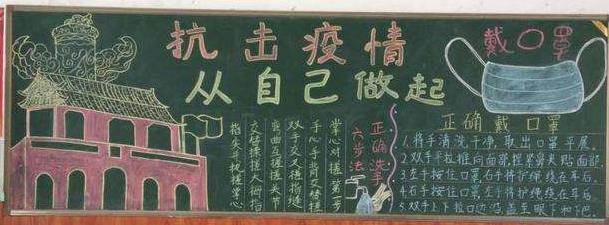 抗击疫情
从自己做起
戴口罩
正确洗手
六步法
掌心对搓第一步
手心手背交替搓
双手交叉搓指缝
弯曲互搓搓关节
交替揉搓大拇指
指尖并拢搓掌心
正确戴口罩
1.将手清洗干净,取出口罩平展。
2.双手平拉推向面部,捏紧鼻夹贴面部.
3.左手按住口罩右手将护绳绕在耳后.
4.右手按住口罩,左手将护绳绕在耳后
5.双手上下拉口边沿,盖至眼下和下巴.